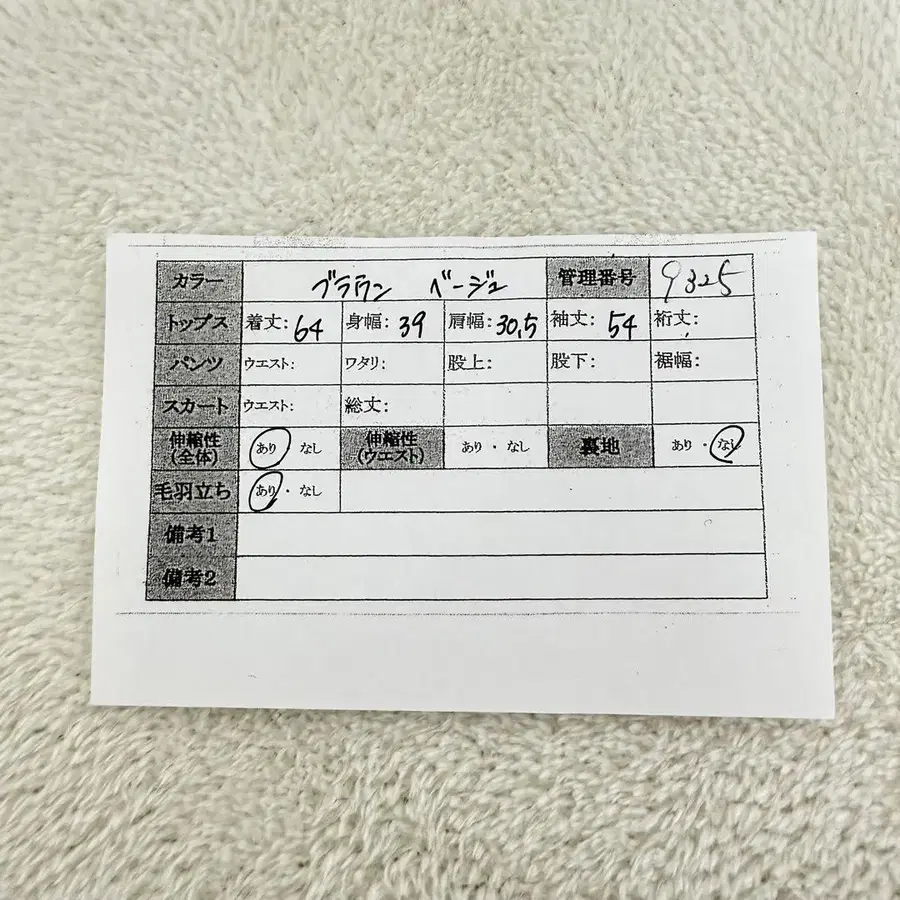 カラー ブラウン ベージュ 管理番号 9325
トップス 着丈: 64 身幅: 39 肩幅: 30.5 袖丈: 54 裄丈:
パンツ ウエスト: ワタリ: 股上: 股下: 裾幅:
スカート ウエスト: 総丈:
伸縮性(全体) あり なし 伸縮性(ウエスト) あり・なし 裏地 あり・なし
毛羽立ち あり・なし
備考1
備考2